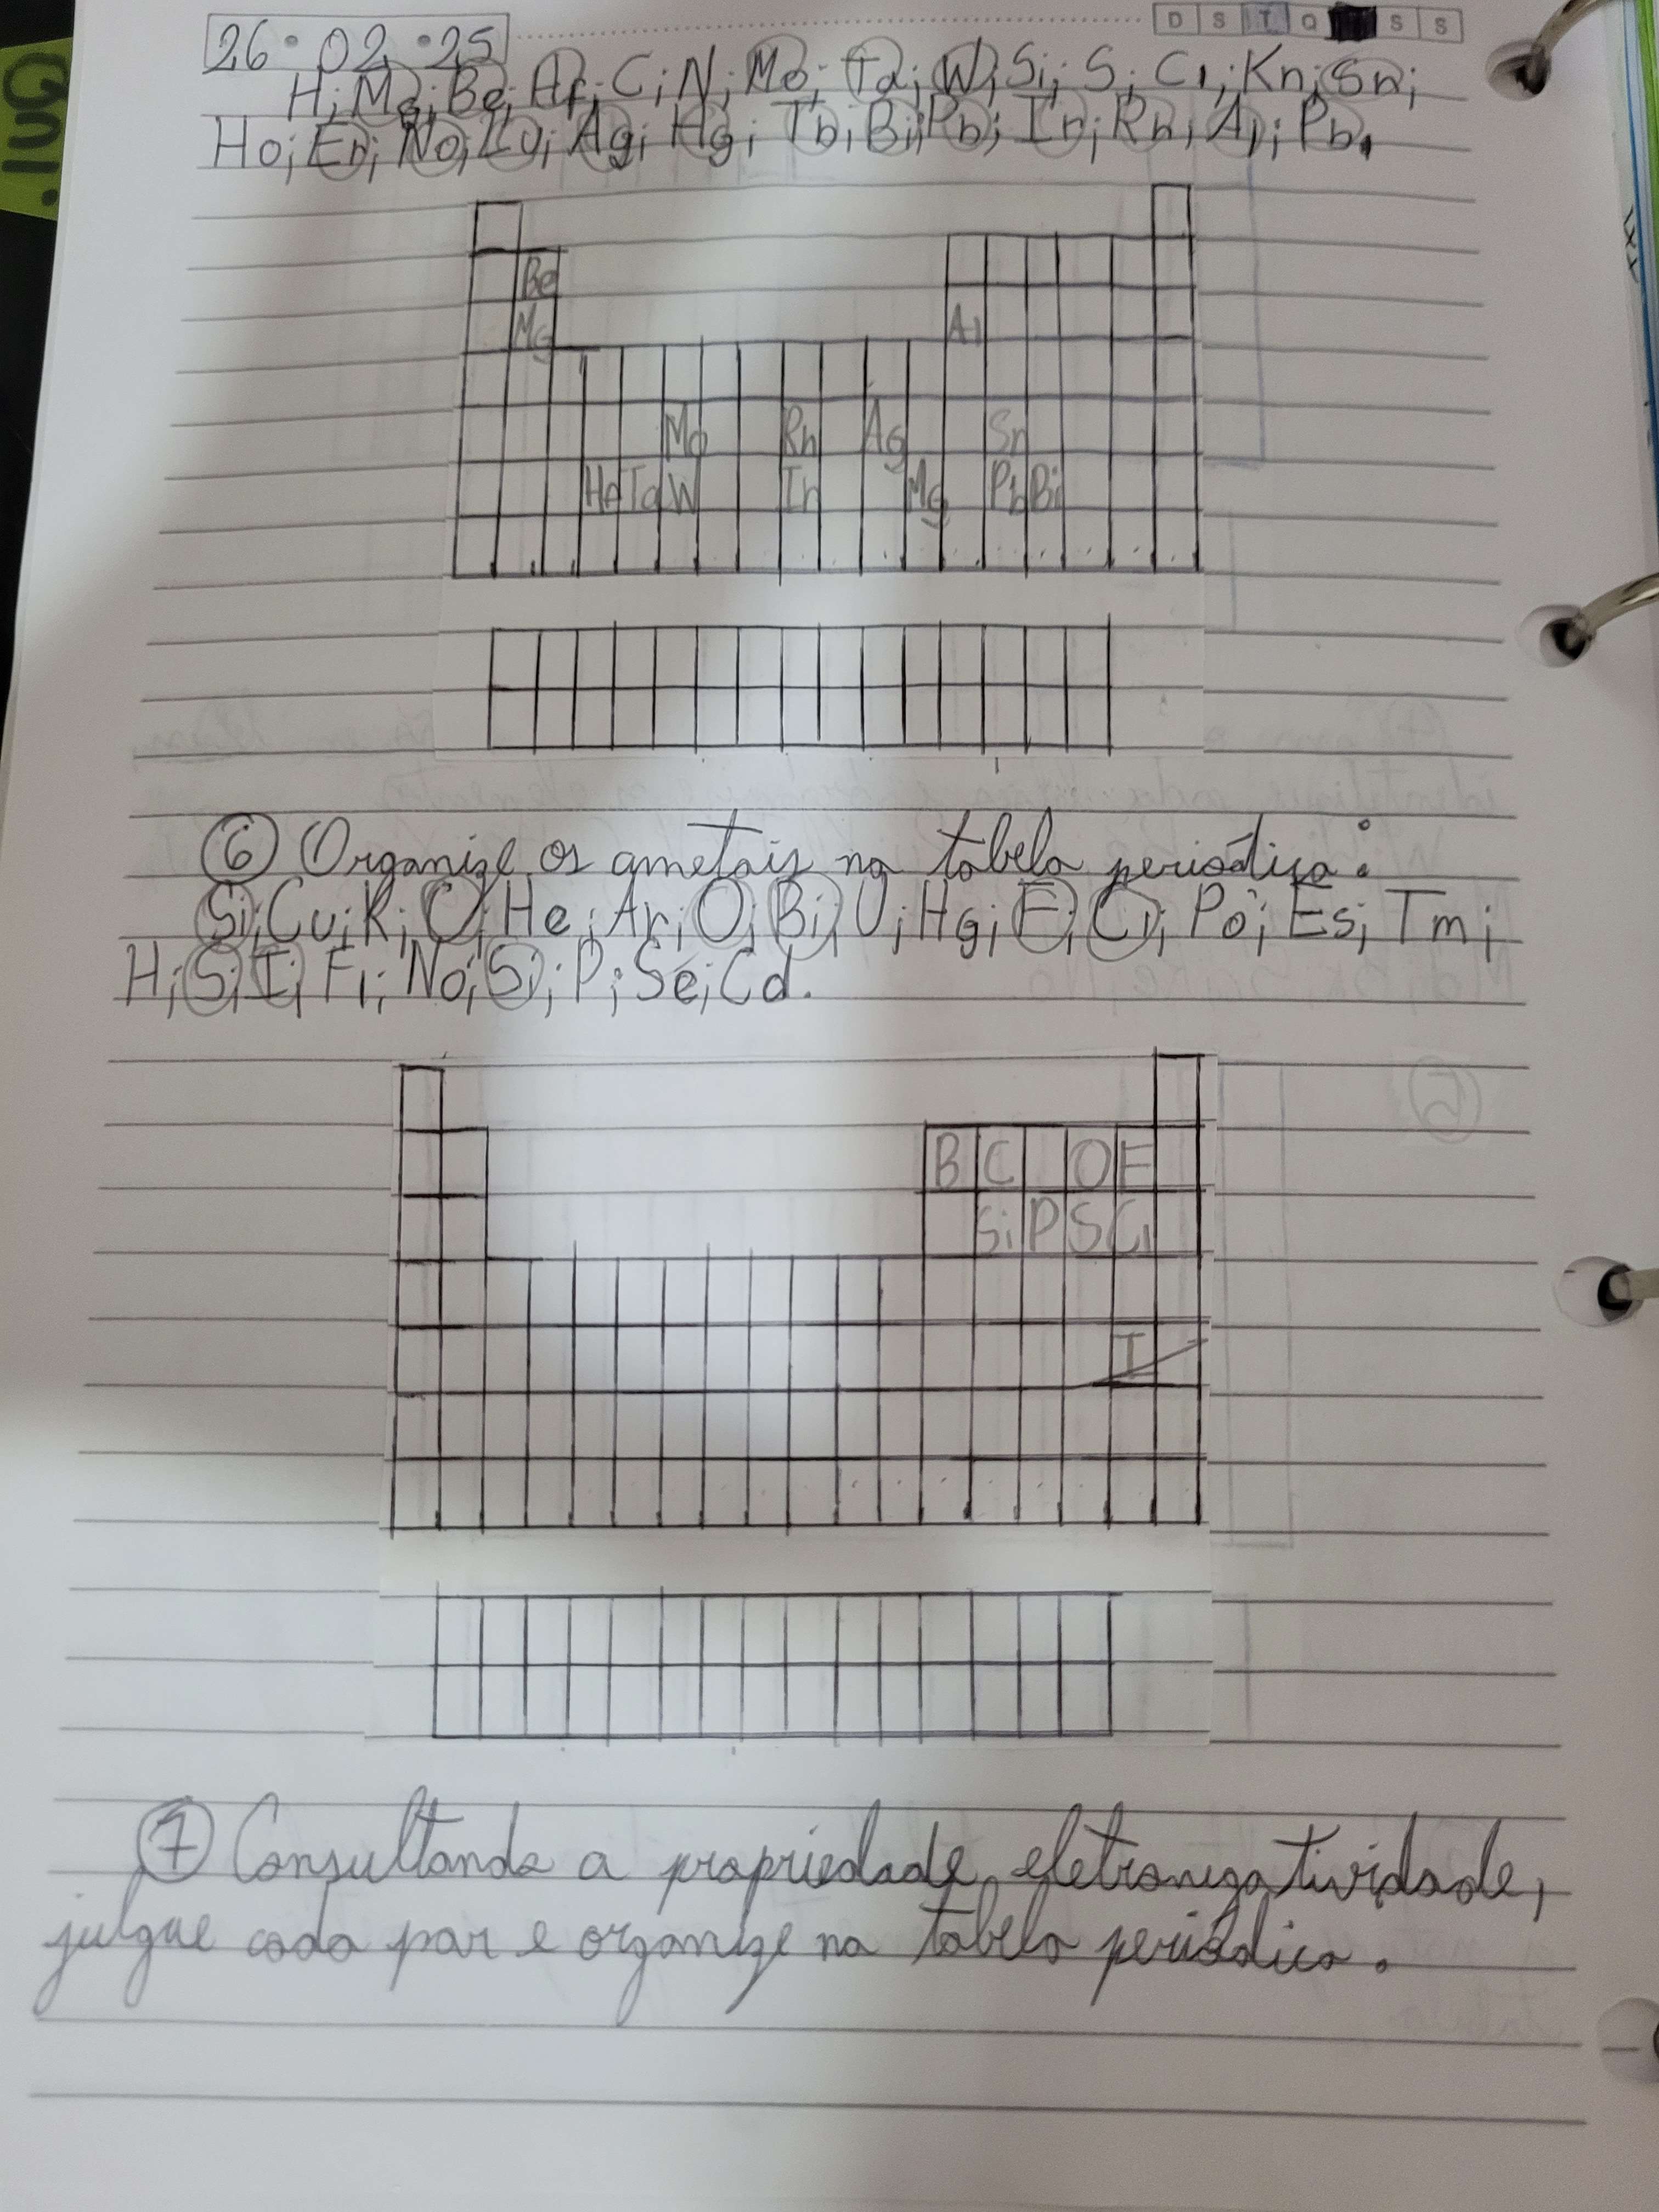 26 • 02 • 25
D S T Q S S
H; Mg; Be; Hf; C; N; Mo; Ta; W; Si; S; Cl; Kn; Sn;
Ho; Er; No; Lu; Ag; Hg; Tb; Bi; Pb; Ir; Rh; Al; Pb.
Be
Mg Al
Mo Rh Ag Sn
Hf Ta W Ir Mg Pb Bi
6 Organize os ametais na tabela periódica:
Si; Cu; K; C; He; Ar; O; Bi; U; Hg; F; Cl; Po; Es; Tm;
H; S; I; Fl; No; Si; P; Se; Cd.
B C O F
Si P S Cl
I
7 Consultando a propriedade eletronegatividade,
julgue cada par e organize na tabela periódica.